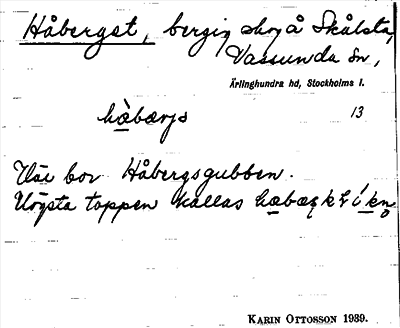 Håberget, bergig skog å Skålsta,
Vassunda sn,
Ärlinghundra hd, Stockholms l.
13
hå̀bærjs
Där bor Håbergsgubben.
Högsta toppen kallas
KARIN OTTOSSON 1939.